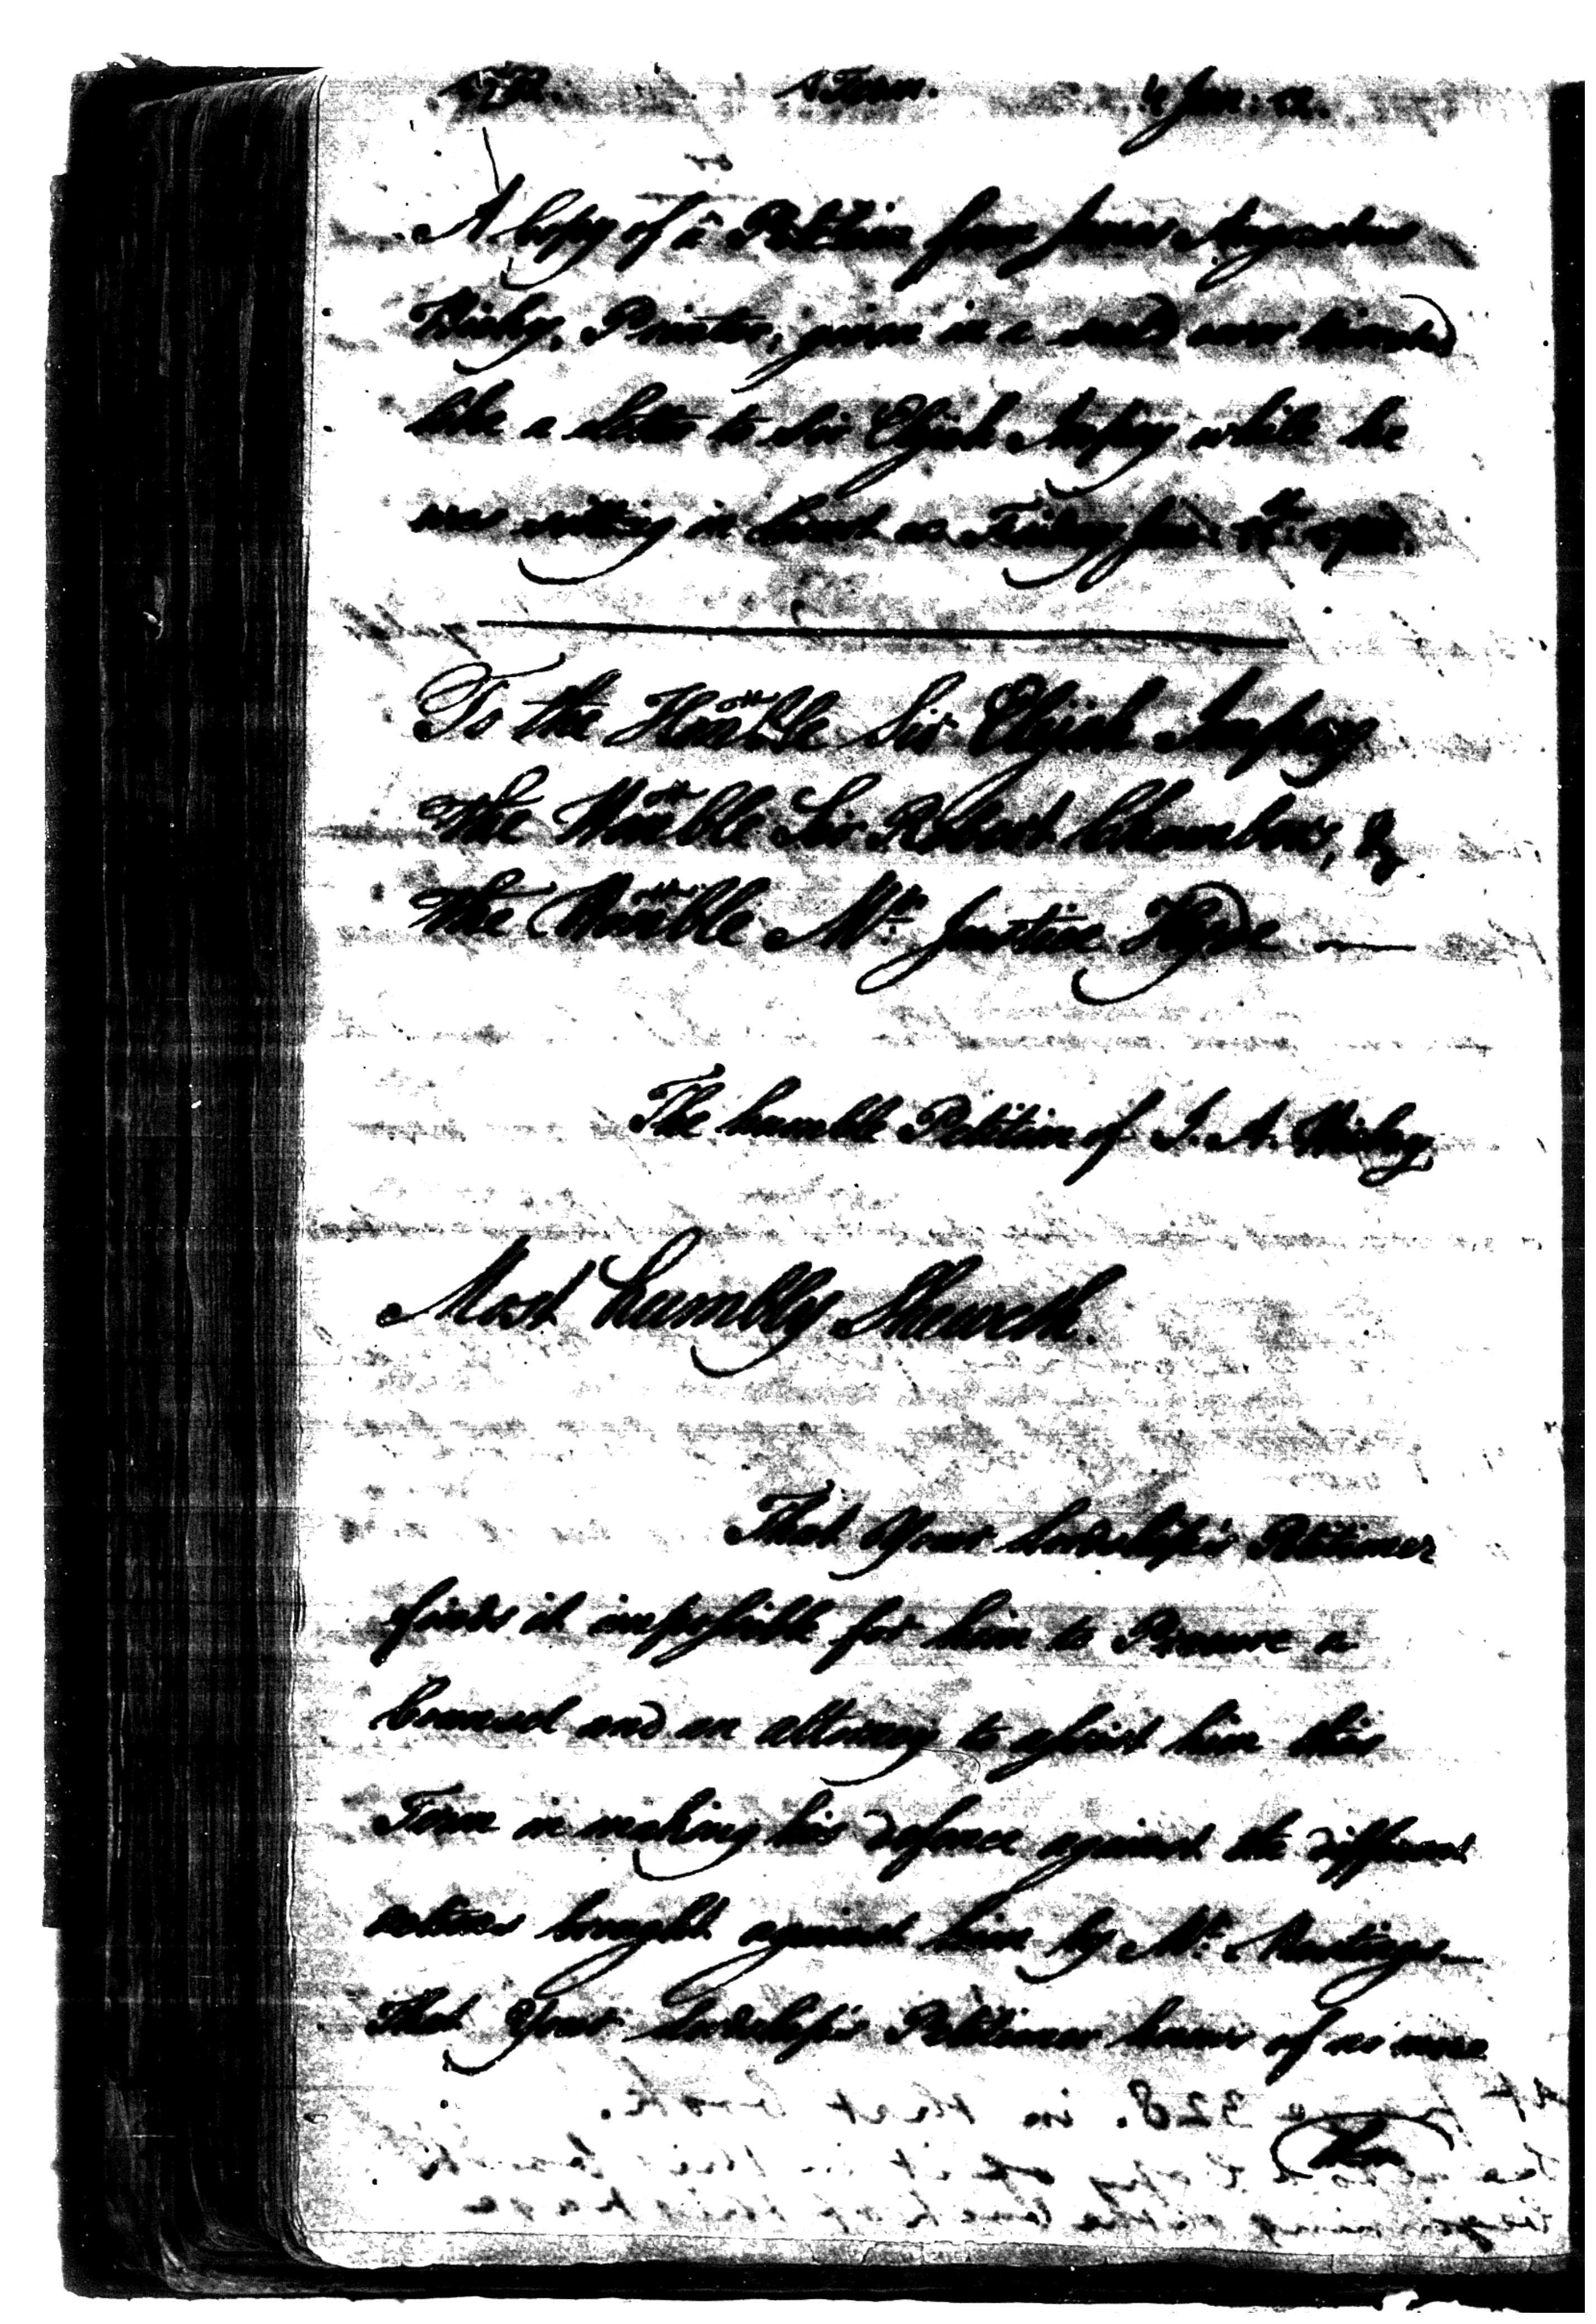 1 Term. 4 Jan: 82.
A Copy of a Petition from James Augustus
Hicky, Printer, given in a seal'd cover
like a Letter to Sir Elijah Impey while he
was sitting in Court on Friday Jan:
To the Hon:ble Sir Elijah Impey
The Hon:ble Sir Robert Chambers, &
The Hon:ble Mr. Justice Hyde —
The humble Petition of J. A. Hicky
Most humbly Sheweth.
That Your Lordship's Petitioner
finds it impossible for him to Procure a
Councel and an attorney to assist him this
Term in making his defence against the different
actions brought against him by Mr. Hastings —
That Your Lordship's Petitioner knows of no more
than